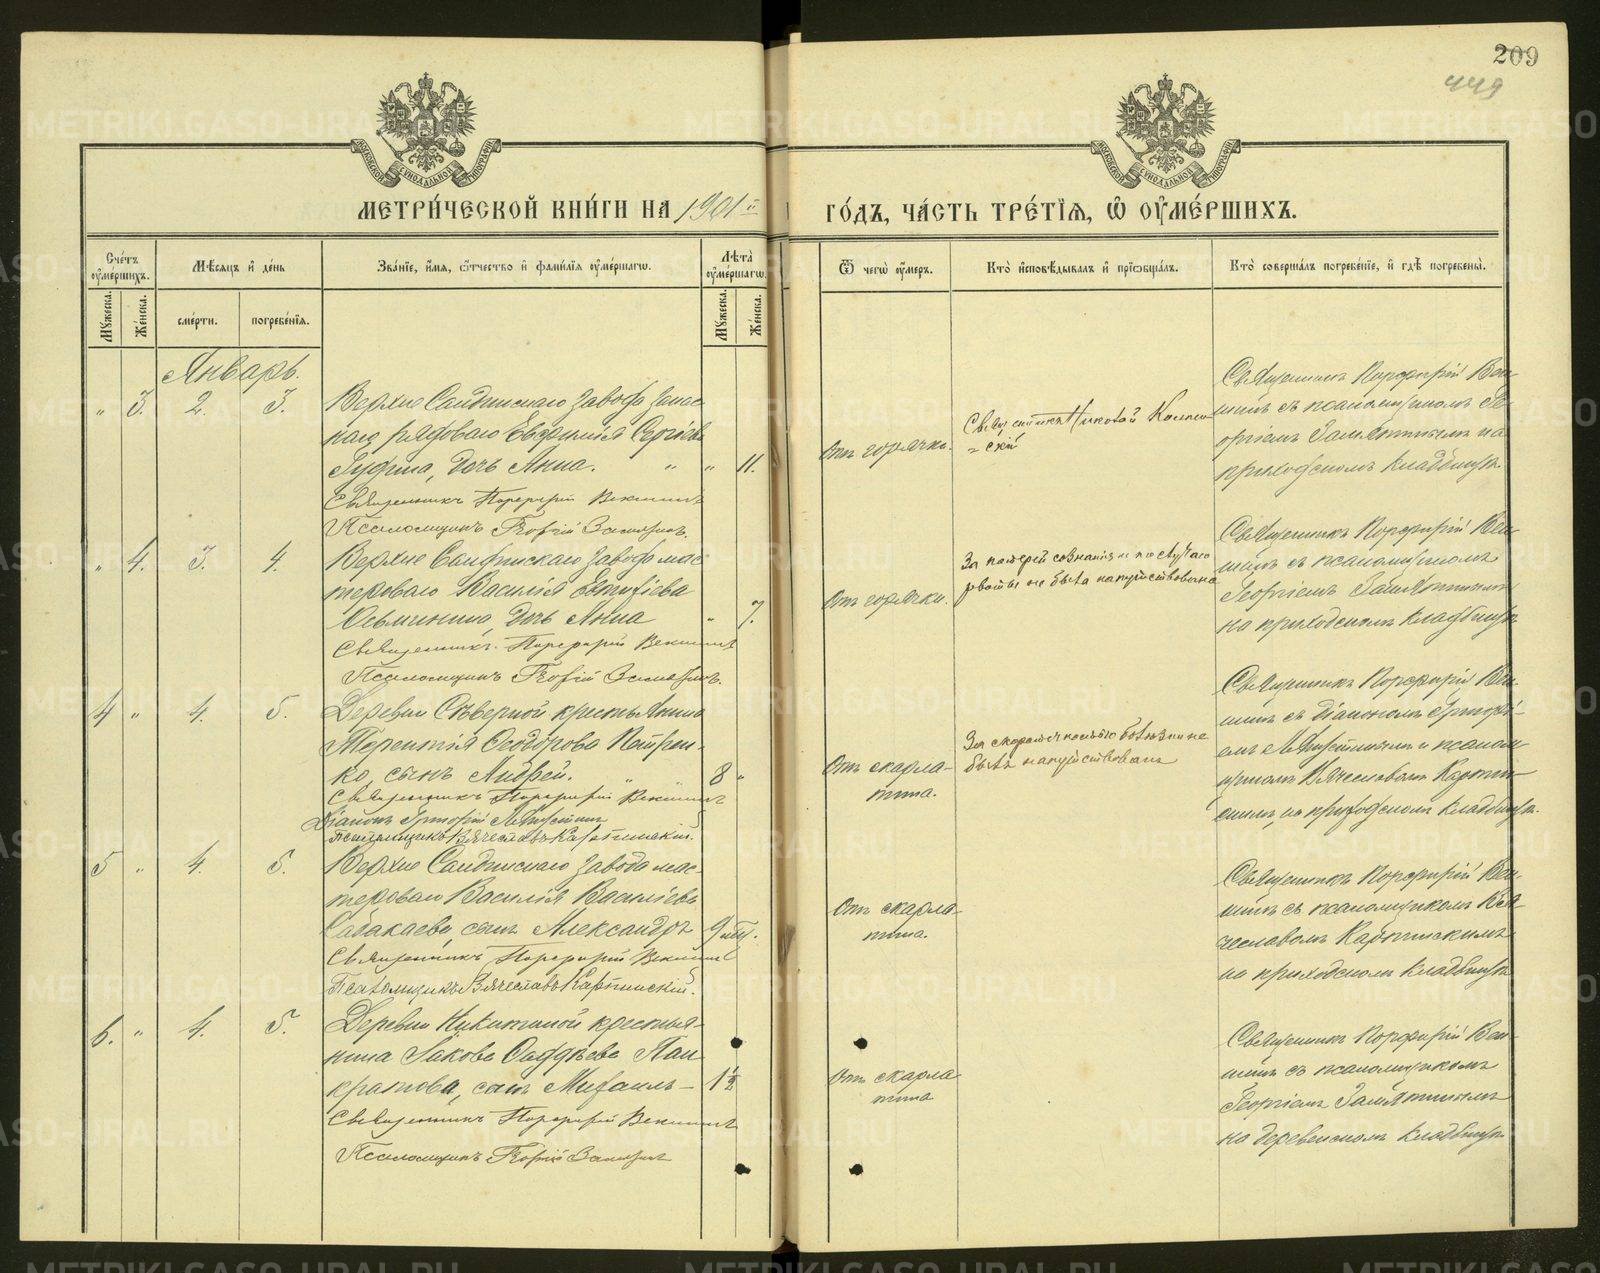 209
449
МЕТРИ́ЧЕСКОЙ КНИ́ГИ НА 1901й ГО́ДЪ, ЧА́СТЬ ТРЕ́ТІѦ, Ѡ ОУМЕ́РШИХЪ.
Сче́тъ оумершихъ.
Мужеска.
Женска.
Мѣсяцъ и день
смерти.
погребенїя.
Званїе, имя, отчество и фамилїя оумершагѡ.
Лѣта оумершагѡ.
Мужеска.
Женска.
Ѿ чегѡ оумеръ.
Кто исповѣдывалъ и прїобщалъ.
Кто совершалъ погребенїе, и гдѣ погребены.
Январь.
" 3. 2. 3.
Верхне Салдинскаго завода запас
наго рядоваго Евфимія Сергіева
дочь Анна. " " 11.
Священникъ Порфирій Векшинъ
Псаломщикъ Георгій Замятинъ.
Отъ горячки.
Священникъ Николай
Священникъ Порфирій Век-
шинъ съ псаломщикомъ Ге-
оргіемъ Замятинымъ на
приходскомъ кладбищѣ.
" 4. 3. 4.
Верхне Салдинскаго завода мас
тероваго Василія
дочь Анна " 7.
Священникъ Порфирій Векшинъ
Псаломщикъ Георгій Замятинъ.
Отъ горячки.
За потерей сознанія и
не была напутствована
Священникъ Порфирій Век-
шинъ съ псаломщикомъ
Георгіемъ Замятинымъ
на приходскомъ кладбищѣ
4 " 4. 5.
Деревни Сѣверной крестьянина
Терентія Ѳеодорова Петрен-
ко, сынъ Андрей. " 8 "
Священникъ Порфирій Векшинъ
Діаконъ Григорій
Псаломщикъ Вячеславъ Карпинскій.
Отъ скарла-
тина.
За скоротечностью болѣзни не
былъ напутствованъ
Священникъ Порфирій Век-
шинъ съ діакономъ Григорі-
емъ и псалом-
щикомъ Вячеславомъ Карпин-
скимъ, на приходскомъ кладбищѣ.
5 " 4. 5.
Верхне Салдинскаго завода мас-
тероваго Василія Васильева
сынъ Александръ 9
Священникъ Порфирій Векшинъ
Псаломщикъ Вячеславъ Карпинскій.
Отъ скарла-
тина.
Священникъ Порфирій Век-
шинъ съ псаломщикомъ Вя-
чеславомъ Карпинскимъ
на приходскомъ кладбищѣ
6. " 4. 5.
Деревни Никитиной крестья-
нина Іакова Ѳаддѣева Пан
кратова, сынъ Михаилъ – 1½
Священникъ Порфирій Векшинъ
Псаломщикъ Георгій Замятинъ
Отъ скарла
тина
Священникъ Порфирій Век-
шинъ съ псаломщикомъ
Георгіемъ Замятинымъ
на деревенскомъ кладбищѣ
METRIKI.GASO-URAL.RU